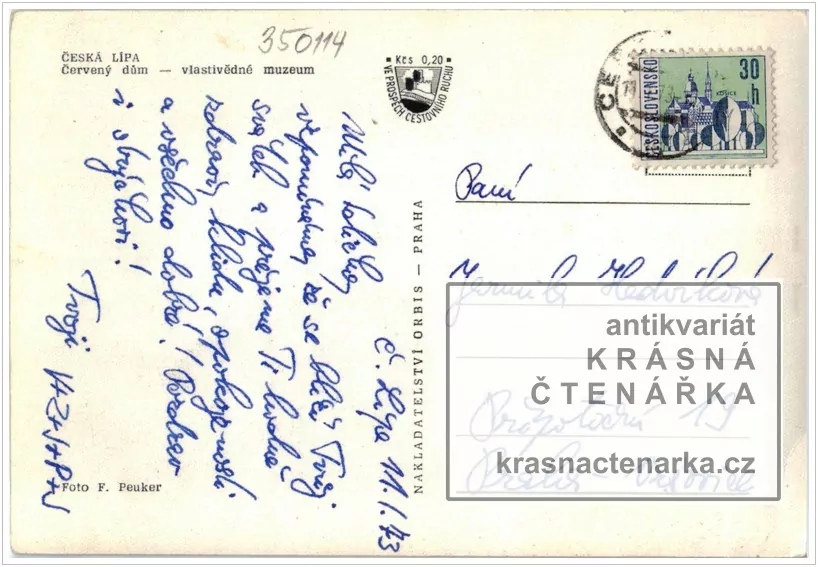 350114
ČESKÁ LÍPA
Červený dům — vlastivědné muzeum
Kčs 0,20
VE PROSPĚCH CESTOVNÍHO RUCHU
ČESKOSLOVENSKO
30 h
KOŠICE
Č. Lípa 11. 1. 73
Milá
vzpomínáme, že se blíží Tvůj
svátek a přejeme Ti hodně
zdraví, klidu, spokojenosti
a všechno dobré! Pozdrav
i strýčkovi!
Tvoji
Foto F. Peuker
NAKLADATELSTVÍ ORBIS — PRAHA
Paní
Jarmila
antikvariát
KRÁSNÁ
ČTENÁŘKA
19
krasnactenarka.cz
Praha -